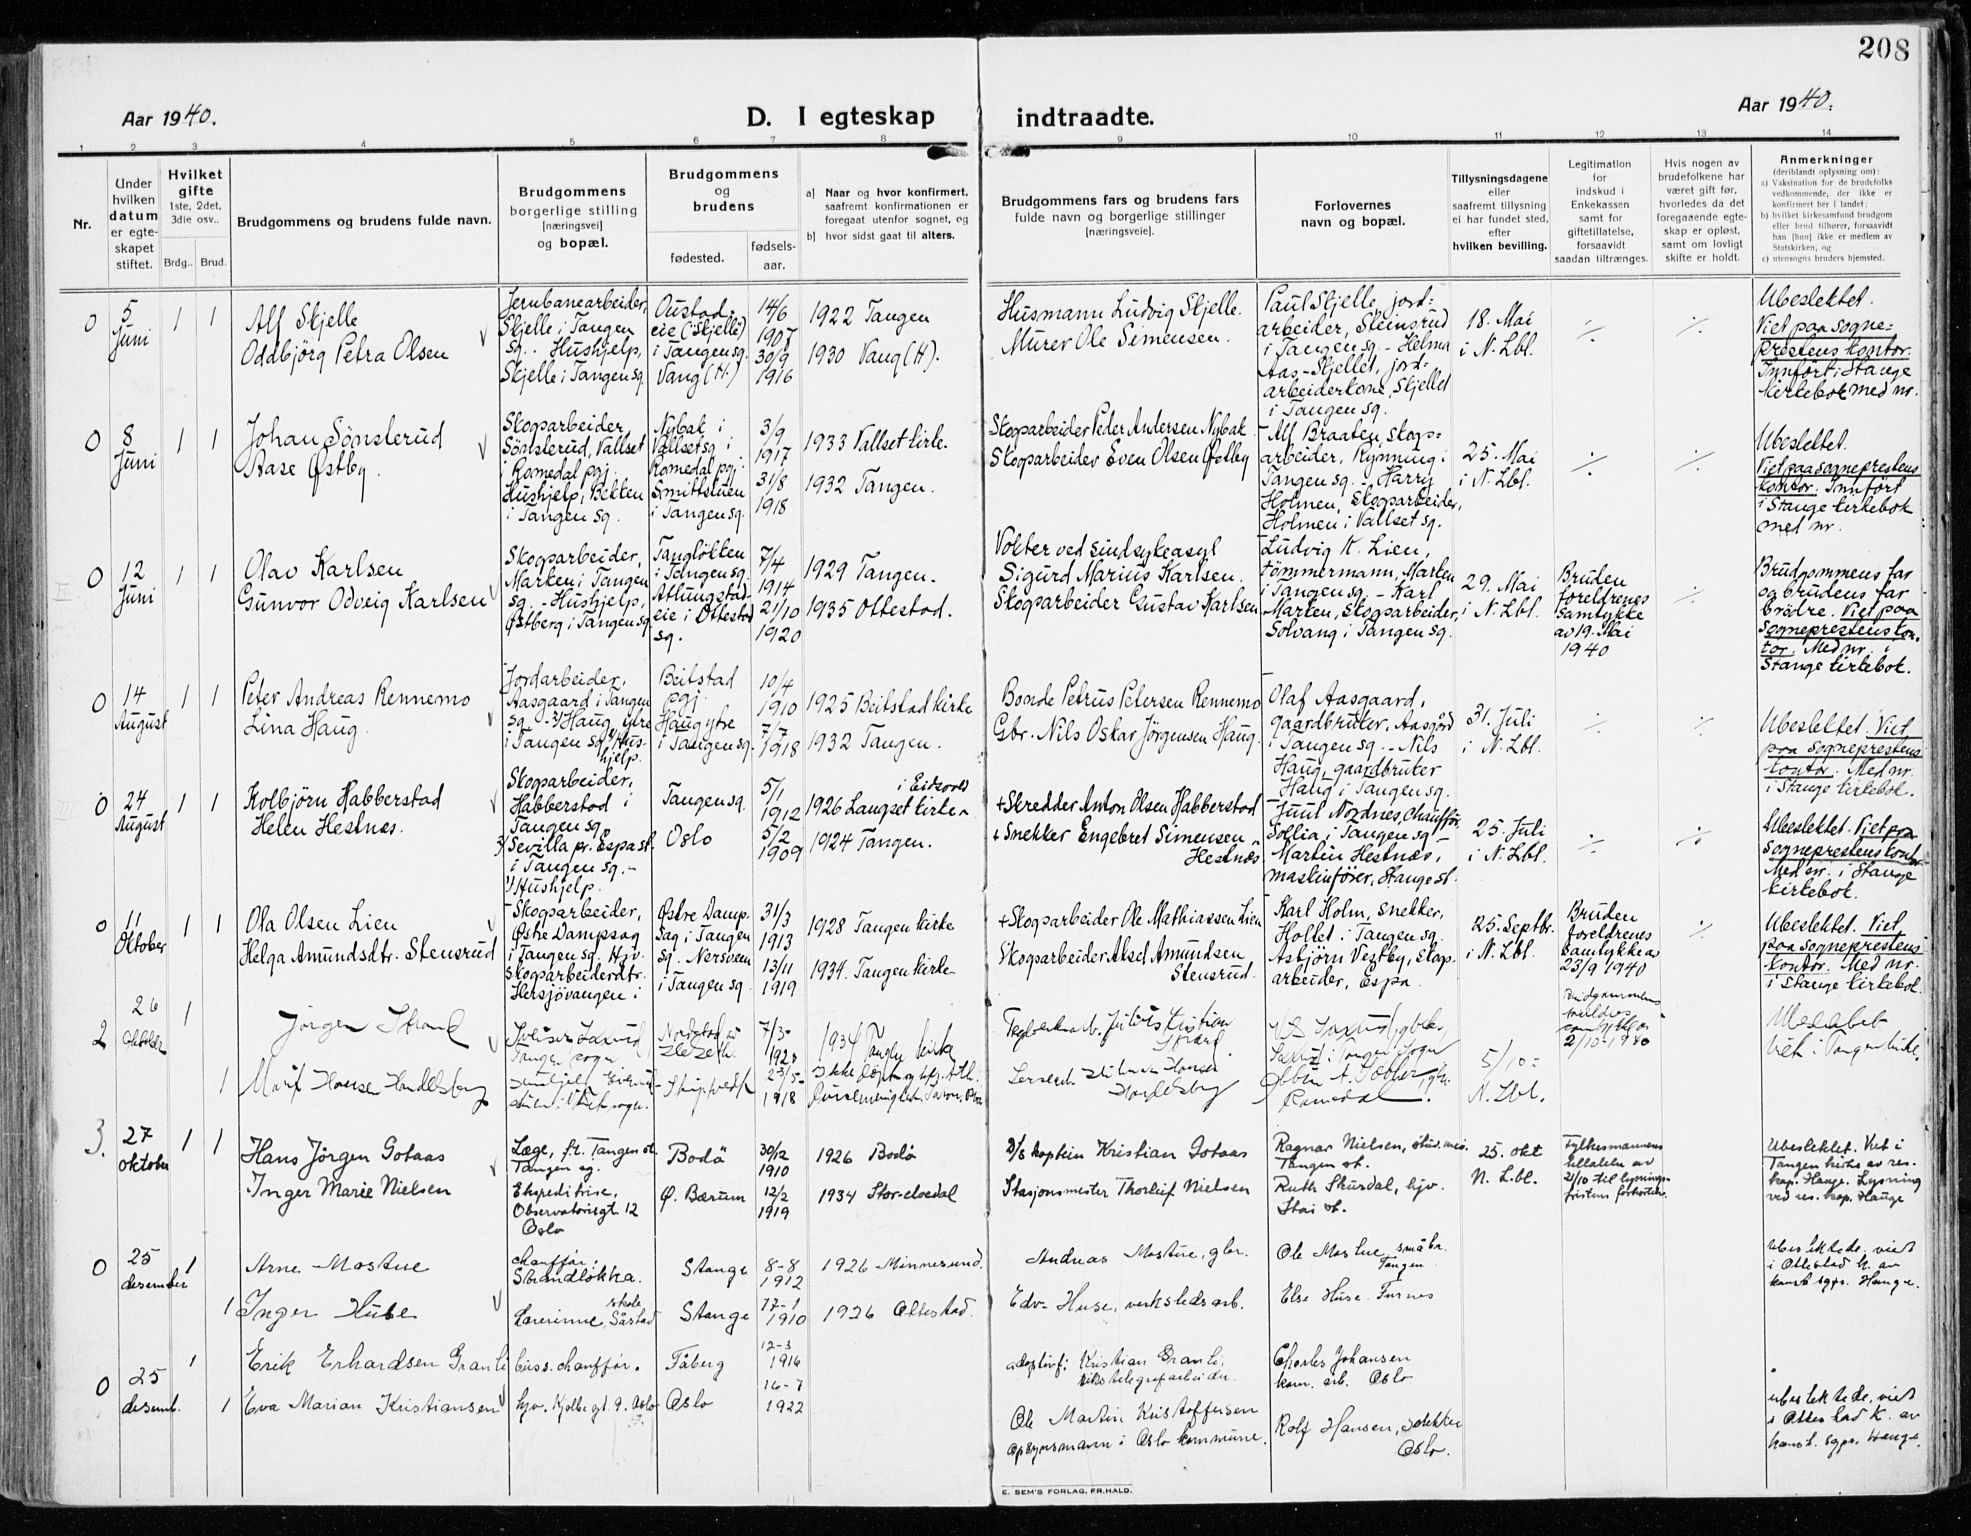 208
Aar 1940.
D. I egteskap indtraadte.
Aar 1940.
1 2 3 4 5 6 7 8 9 10 11 12 13 14
Nr.
Under
hvilken
datum
er egte-
skapet
stiftet.
Hvilket
gifte
1ste, 2det,
3die osv..
Brdg.. Brud.
Brudgommens og brudens fulde navn.
Brudgommens
borgerlige stilling
[næringsvei]
og bopæl.
Brudgommens
og
brudens
fødested.
fødsels-
aar.
a] Naar og hvor konfirmert,
saafremt konfirmationen er
foregaat utenfor sognet, og
b] hvor sidst gaat til alters.
Brudgommens fars og brudens fars
fulde navn og borgerlige stillinger
[næringsveie].
Forlovernes
navn og bopæl.
Tillysningsdagene
eller
saafremt tillysning
ei har fundet sted,
efter
hvilken bevilling.
Legitimation
for
indskud i
Enkekassen
samt for
giftetillatelse,
forsaavidt
saadan tiltrænges.
Hvis nogen av
brudefolkene har
været gift før,
hvorledes da det
foregaaende egte-
skap er opløst,
samt om lovligt
skifte er holdt.
Anmerkninger
(deriblandt oplysning om):
a) Vaksination for de brudefolks
vedkommende, der ikke er
konfirmert her i landet;
b) hvilket kirkesamfund brudgom
eller brud tilhører, forsaavidt
han [hun] ikke er medlem av
Statskirken, og
c) utensogns bruders hjemsted.
0
5
Juni
1 1
Alf Skjelle
Oddbjörg Petra Olsen
Jernbanearbeider,
Skjelle i Tangen
sg. - Hushjelp,
Skjelle i Tangen sg
Oustad-
eie (Skjelle)
i Tangen sg.
Vang (H.)
14/6
1907
30/9
1916
1922 Tangen
1930 Vang (H).
Husmann Ludvig Skjelle.
Murer Ole Simensen.
Paul Skjelle, jord=
arbeider, Steinsrud
i Tangen sg. - Helma
Aas-Skjellet, jord=
arbeiderkone, Skjellet
i Tangen sg.
18. Mai
i N. Lbl.
Ubeslektet.
Viet paa sogne=
prestens kontor.
Innført i Stange
kirkebok med nr.
0
8
Juni
1 1
Johan Sönslerud
Aase Østby.
Skogsarbeider
Sönslerud, Vallset
i Romedal pgj.
Hushjelp, Bekken
i Tangen sg.
Nybak i
Vallset sg. i
Romedal pgj.
Smittstuen
i Tangen sg.
3/9
1917
31/8
1918
1933 Vallset kirke.
1932 Tangen.
Skogsarbeider Peder Andersen Nybak
Skogsarbeider Even Olsen Østby
Alf Braaten, skogs=
arbeider, Rynning i
Tangen sg. - Harry
Holmen, Skogsarbeider,
Holmen i Vallset sg.
25. Mai
i N. Lbl.
Ubeslektet.
Viet paa sogneprestens
kontor. Innført
i Stange kirkebok
med nr.
0
12
Juni
1 1
Olav Karlsen
Gunvor Odveig Karlsen
Skogsarbeider,
Marken i Tangen
sg. - Hushjelp,
Østberg i Tangen sg
Tangløkken
i Tangen sg.
Atlungstad-
eie i Ottestad
sg.
7/4
1914
21/10
1920
1929 Tangen.
1935 Ottestad.
Vokter ved sindsykeasyl
Sigurd Marius Karlsen.
Skogsarbeider Gustav Karlsen
Ludvig K. Lien,
tømmermann, Marken
i Tangen sg. - Karl
Marken, Skogsarbeider,
Solvang i Tangen sg.
29. Mai
i N. Lbl.
Bruden
foreldrenes
samtykke
av 19. Mai
1940
Brudgommens far
og brudens far
brødre. Viet paa
sogneprestens kon-
tor. Med nr. i
Stange kirkebok.
0
14
August
1 1
Peter Andreas Rennemo
Lina Haug.
Jordarbeider,
Aasgaard i Tangen
sg. - Haug ytre
i Tangen sg. Hus-
hjelp.
Beitstad
pgj.
Haug ytre
i Tangen sg.
10/4
1910
7/7
1918
1925 Beitstad kirke
1932 Tangen.
Bonde Petrus Petersen Rennemo
Gbr. Nils Oskar Jörgensen Haug.
Olaf Aasgaard,
gaardbruker, Aasgård
i Tangen sg. - Nils
Haug, gaardbruker
Haug i Tangen sg.
31. Juli
i N. Lbl.
Ubeslektet. Viet
paa sogneprestens
kontor. Med nr.
i Stange kirkebok.
0
24
August
1 1
Kolbjörn Habberstad
Helen Hestnes.
Skogsarbeider,
Habberstad i
Tangen sg.
Sevilla pr. Espa st.
i Tangen sg. -
Hushjelp.
Tangen sg.
Oslo
5/1
1912
5/2
1909
i Eidsvold
1926 Langset kirke
1924 Tangen.
+ Skredder Anton Olsen Habberstad
+ Snekker Engebret Simensen
Hestnes
Juul Nordnes, Chauffør,
Sollia i Tangen sg -
Martin Hestnæs,
maskinfører, Stange st.
25. Juli
i N. Lbl.
Ubeslektet. Viet paa
sogneprestens kontor
Med nr. i Stange
kirkebok.
0
11
Oktober
1 1
Ola Olsen Lien
Helga Amundsdtr. Stensrud
Skogsarbeider,
Østre Dampsag
i Tangen sg. Hjv.
skogsarbeiderdtr.
Hersjövangen i
Østre Damp-
sag i Tangen
sg. Nersveen
i Tangen sg
31/3
1913
13/11
1919
1928 Tangen kirke
1934. Tangen kirke
+ Skogsarbeider Ole Mathiassen Lien
Skogsarbeider Aksel Amundsen
Stensrud.
Karl Holm, snekker,
Holtet i Tangen sg.
Asbjörn Vestby, skogs-
arbeider, Espa.
25. Septbr.
i N. Lbl.
Bruden
foreldrenes
samtykke av
23/9 1940
Ubeslektet. Viet
paa sogneprestens
kontor. Med nr.
i Stange kirkebok.
2
26
oktober
1
Jörgen Strand
Tangen sogn
7/3-
1920
1934 Tangen kirke
Brudgommens
foreldres
samtykke av
2/10-1940
Ubeslektet
Viet i Tangen kirke.
1
Marit Hansen Handelsby
23/5-
1918
Romedal.
5/10-
N. Lbl.
3.
27
oktober
1 1
Hans Jörgen Gotaas
Inger Marie Nielsen
Læge, fr. Tangen st.
Tangen sg.
Ekspeditrise,
Observatoriegt. 12
Oslo
Bodö
Ø. Bærum
30/12
1910
12/2
1919
1926 Bodö
1934 Stor-elvedal
D/S kaptein Kristian Gotaas
Stasjonsmester Thorleif Nielsen
Ragnar Nielsen, stud. med.
Tangen st.
Ruth Skurdal, hjv.
Stai st.
25. okt
N. Lbl.
Fylkesmannens
tillatelse av
21/10 til lysnings-
fristens forkortelse.
Ubeslektet. Viet i
Tangen kirke av res.
kap. Hauge. Lysning
ved res. kap. Hauge
0
25
desember
1
Arne Mostue
chauffør,
Strandløkka.
Stange
8-8
1912
1926 Minnesund.
Andreas Mostue, gbr.
Ole Mostue, småbr.
Tangen
Ubeslektede, viet
i Ottestad k. av
konst. sgpr. Hauge.
1
Inger Huse
skole
Lærerinne, Såstad
Stange
17-1
1910
1926 Ottestad.
Edv. Huse, verkstedsarb.
Else Huse. Furnes
0
25
desemb.
1
Erik Erhardsen Granli
buss. chauffør.
Fåberg
12-3
1916
adoptivf: Kristian Granli,
rikstelegrafarbeider.
Charles Johansen
kom. arb. Oslo
1
Eva Marian Kristiansen
hjv. Kjølbergt. 9. Oslo
Oslo
16-7
1922
Ole Martin Kristoffersen
opsynsmann i Oslo kommune.
Rolf Hansen, snekker
Oslo.
ubeslektede, viet
i Ottestad k. av
konst. sgpr. Hauge.
E. SEM'S FORLAG, FR.HALD.